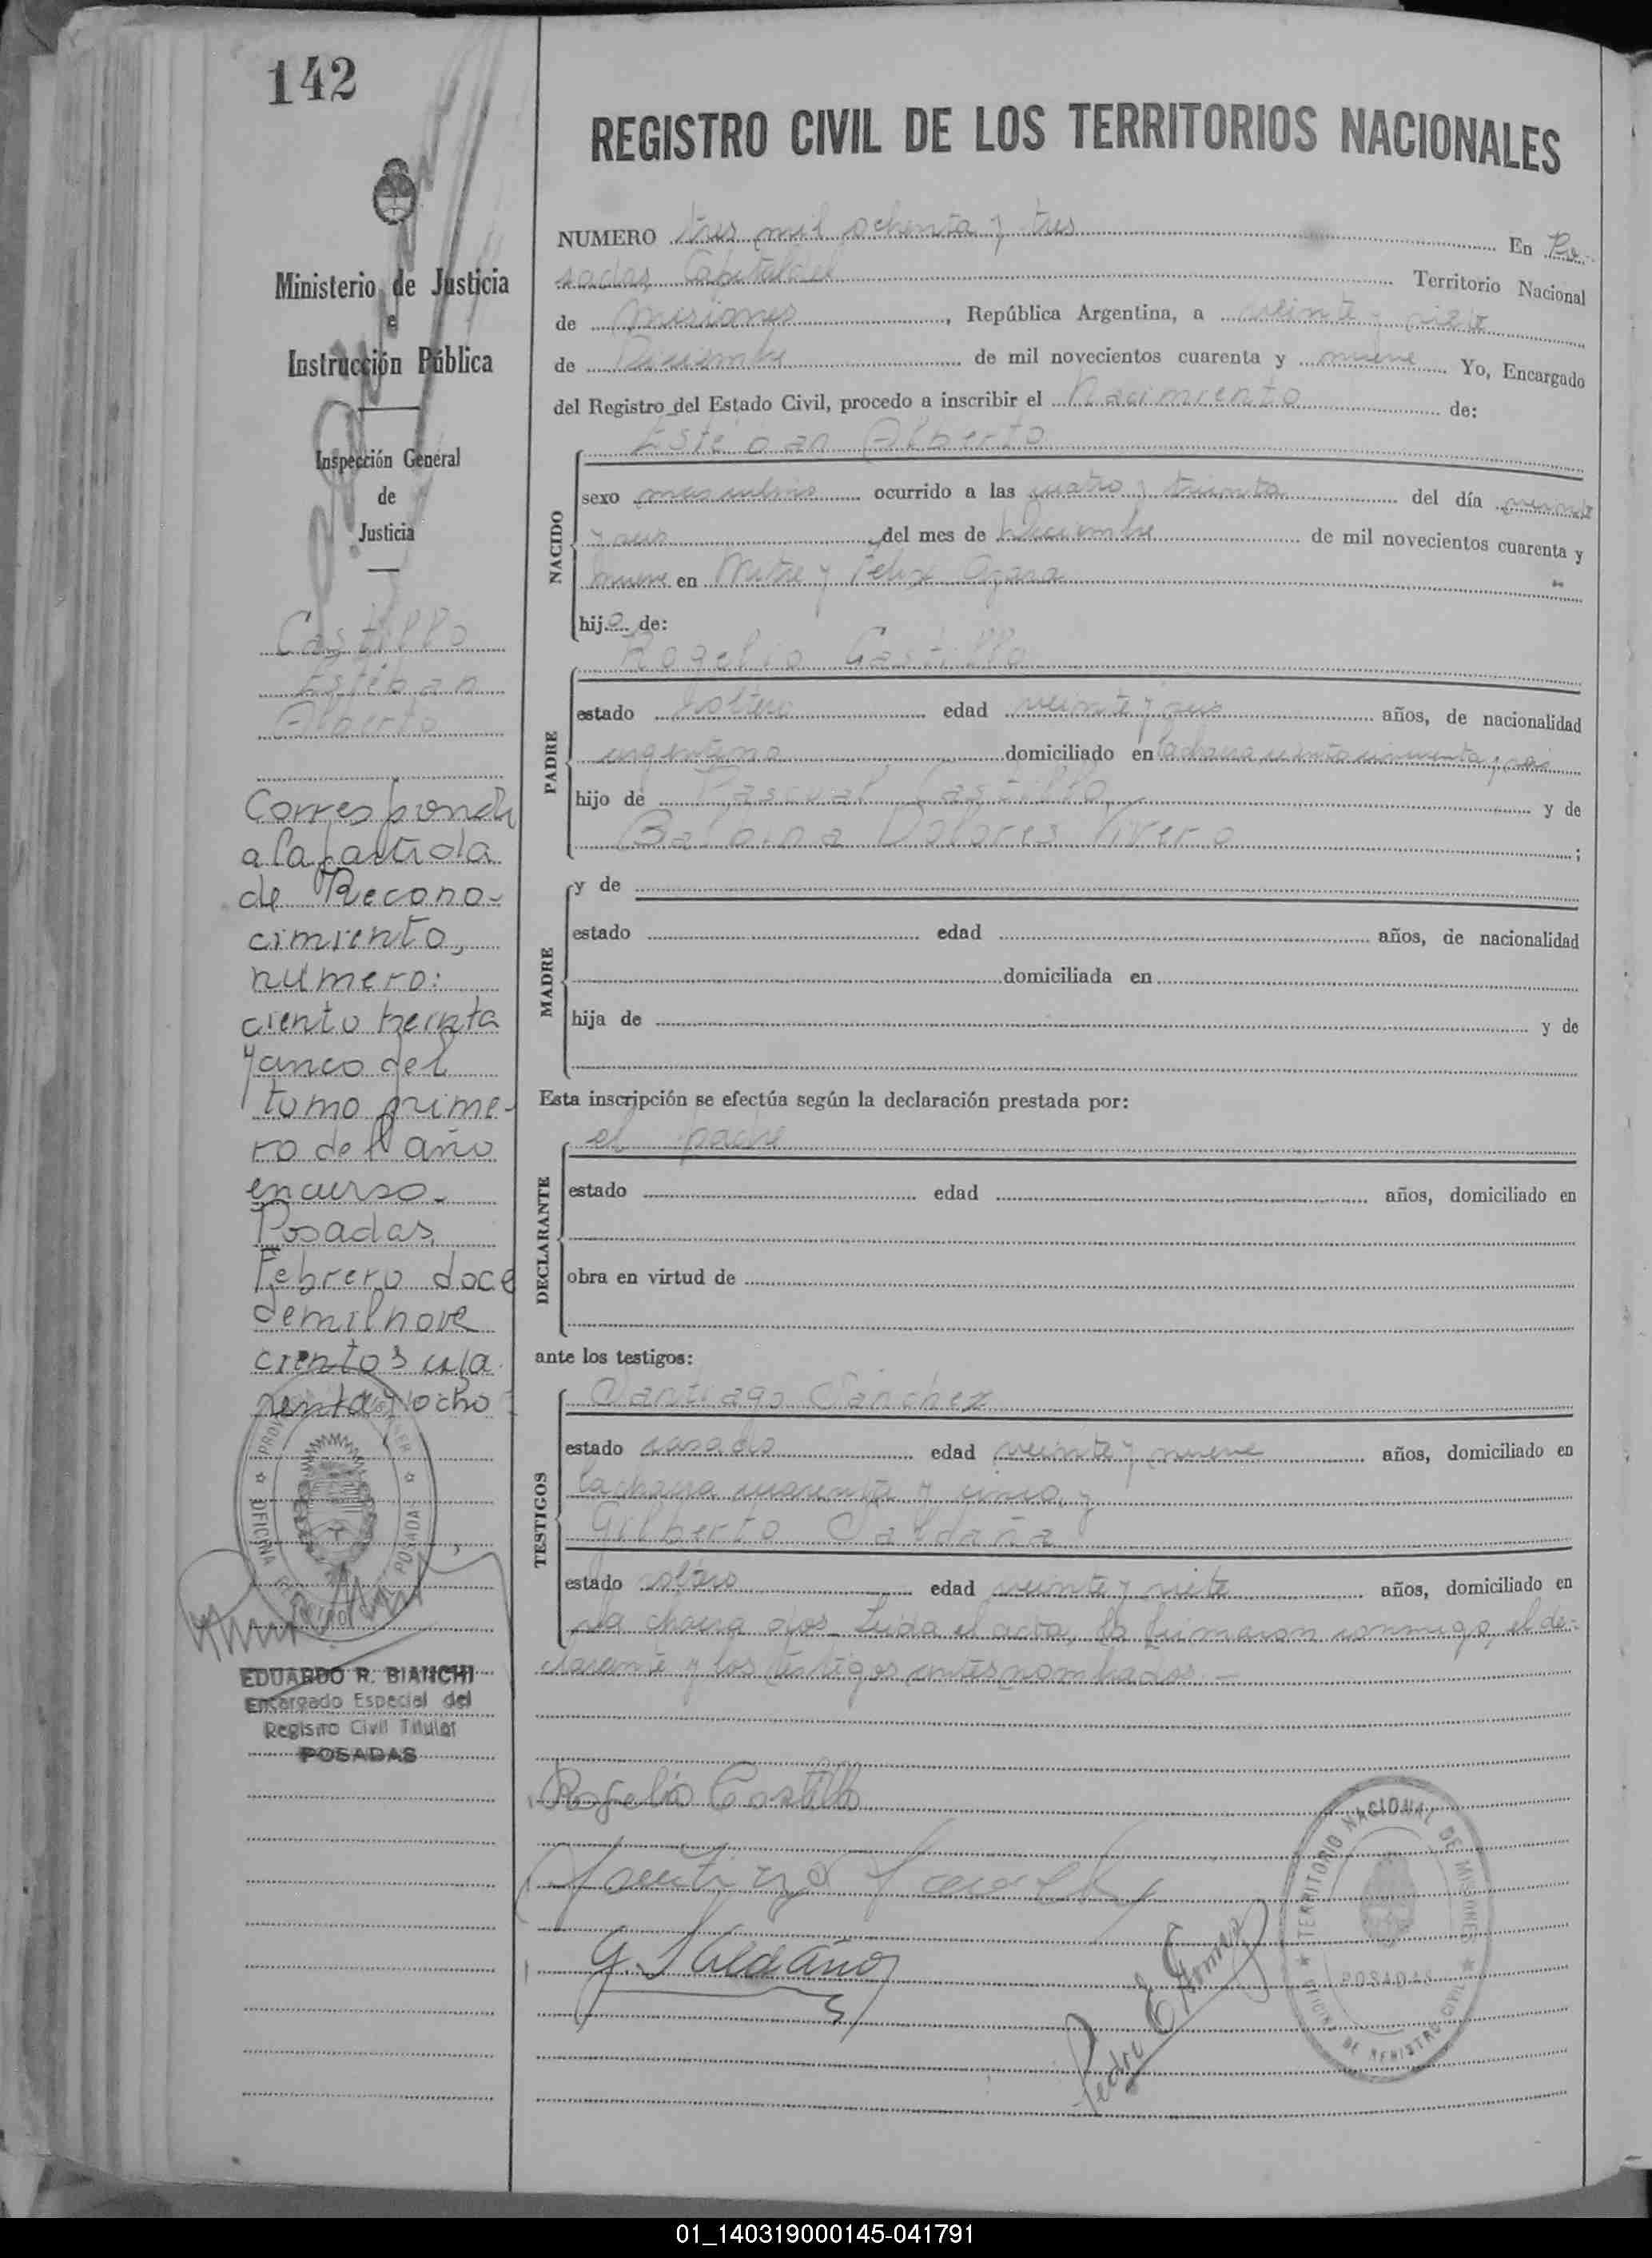 142
Ministerio de Justicia
e
Instrucción Pública
Inspección General
de
Justicia
Castillo
Esteban
Alberto
Corresponde
a la partida
de Recono-
cimiento,
número:
ciento treinta
y cinco del
tomo prime-
ro del año
en curso.
Posadas,
Febrero doce
de mil nove
cientos
y ocho
OFICINA POSADAS
EDUARDO R. BIANCHI
Encargado Especial del
Registro Civil Titular
POSADAS
REGISTRO CIVIL DE LOS TERRITORIOS NACIONALES
NUMERO tres mil ochenta y tres En Po-
sadas Capital del Territorio Nacional
de Misiones, República Argentina, a veinte y siete
de Diciembre de mil novecientos cuarenta y nueve Yo, Encargado
del Registro del Estado Civil, procedo a inscribir el Nacimiento de:
NACIDO
Esteban Alberto
sexo masculino ocurrido a las cuatro y treinta del día veinte
y seis del mes de Diciembre de mil novecientos cuarenta y
nueve en Mitre y Felix Azara
hijo de:
PADRE
Rogelio Castillo
estado soltero edad veinte y seis años, de nacionalidad
argentino domiciliado en la chacra ciento cincuenta y seis
hijo de Pascual Castillo, y de
Balbina Dolores Vivero;
MADRE
y de
estado edad años, de nacionalidad
domiciliada en
hija de y de
Esta inscripción se efectúa según la declaración prestada por:
DECLARANTE
el padre
estado edad años, domiciliado en
obra en virtud de
ante los testigos:
TESTIGOS
Santiago Sanchez
estado casado edad veinte y nueve años, domiciliado en
la chacra cuarenta y cinco, y
Gilberto Saldaña
estado soltero edad veinte y siete años, domiciliado en
la chacra dos. Leida el acta, la firmaron conmigo, el de-
clarante y los testigos antes nombrados.-
Rogelio Castillo
Santiago Sanchez
G. Saldaña
Pedro E. Gomez
TERRITORIO NACIONAL DE MISIONES
POSADAS
OFICINA DE REGISTRO CIVIL
01_140319000145-041791